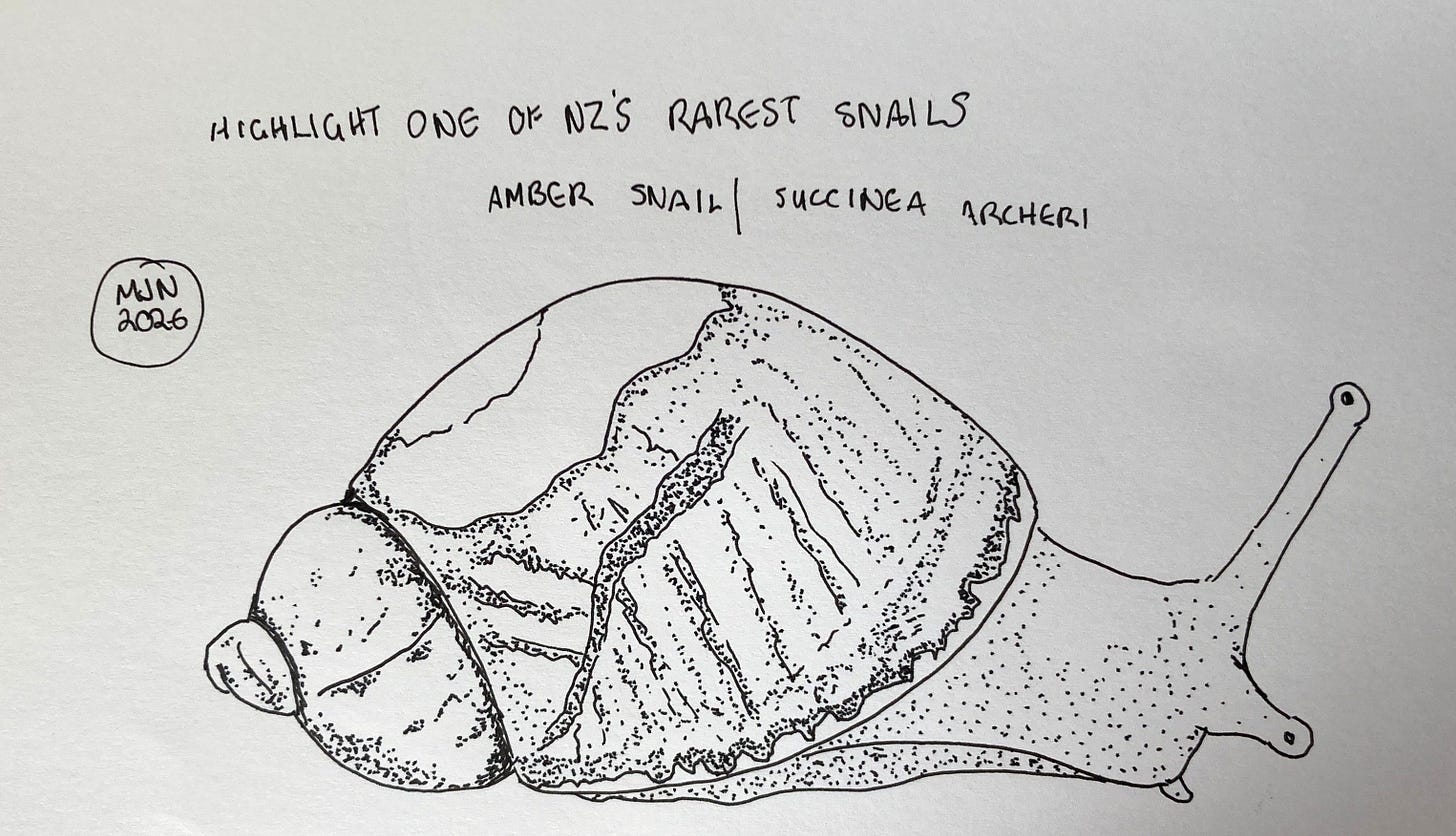 HIGHLIGHT ONE OF NZ'S RAREST SNAILS
AMBER SNAIL| SUCCINEA ARCHERI
MJN
2026